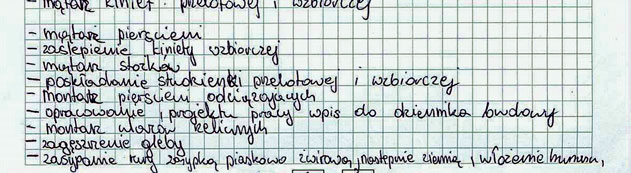 - montaż kinet przelotowej i wzbiorczej
- montaż pierścieni
- zaślepienie kinety wzbiorczej
- montaż stożków
- poskładanie studzienki przelotowej i wzbiorczej
- montaż pierścieni odciążających
- opracowanie projektu pracy wpis do dziennika budowy
- montaż włazów żeliwnych
- zagęszczenie gleby
- zasypanie rury zasypką piaskowo żwirową, następnie ziemią, włożenie humusu,